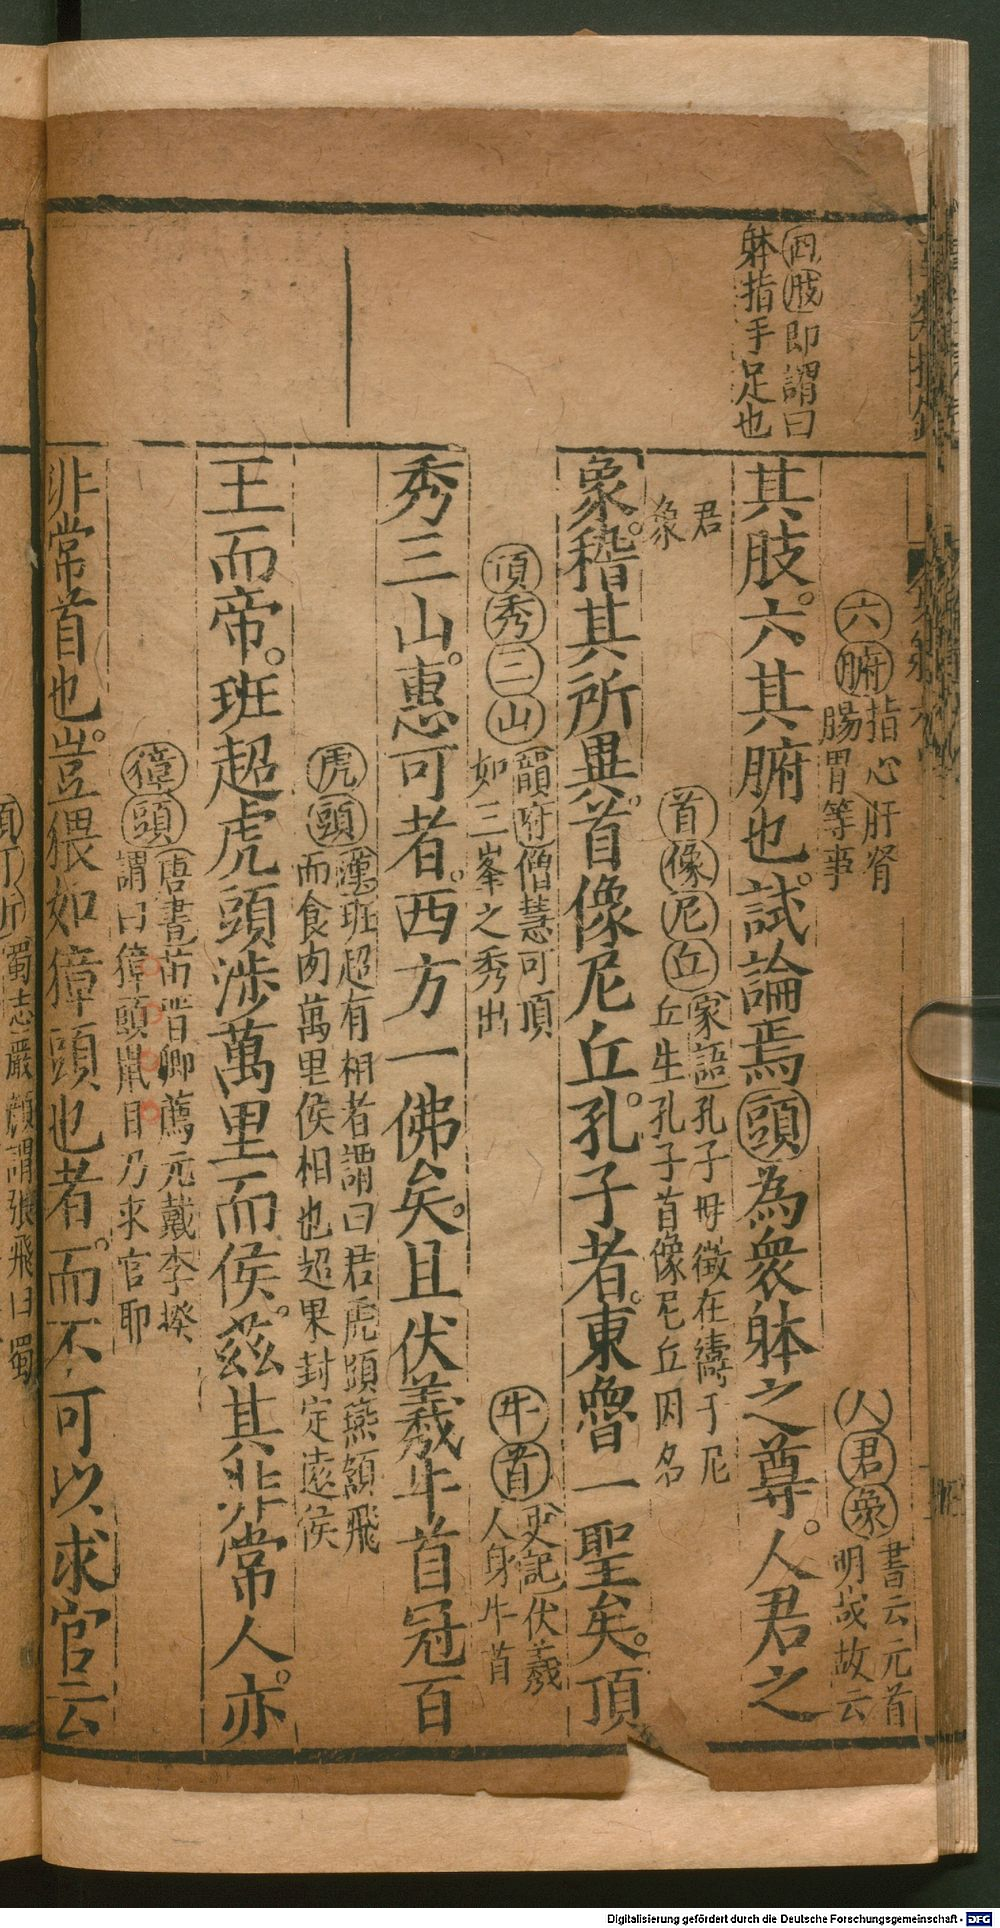 四肢即謂曰
躰指手足也
六腑指心肝腎
腸胃等事
人君象書云元首
明哉故云
其肢六其腑也試論焉頭為衆躰之尊人君之
君
象
首像尼丘家語孔子母徵在禱于尼
丘生孔子首像尼丘因名
象稽其所異首像尼丘孔子者東魯一聖矣頂
頂秀三山韻府僧慧可頂
如三峯之秀出
牛首史記伏羲
人身牛首
秀三山惠可者西方一佛矣且伏羲牛首冠百
虎頭漢班超有相者謂曰君虎頭燕頷飛
而食肉萬里侯相也超果封定遠侯
王而帝班超虎頭涉萬里而侯茲其非常人亦
獐頭唐書苗晋卿薦元載李揆
謂曰獐頭鼠目乃求官耶
非常首也豈猥如獐頭也者而不可以求官云
蜀志嚴顔謂張飛曰蜀
Digitalisierung gefördert durch die Deutsche Forschungsgemeinschaft - DFG